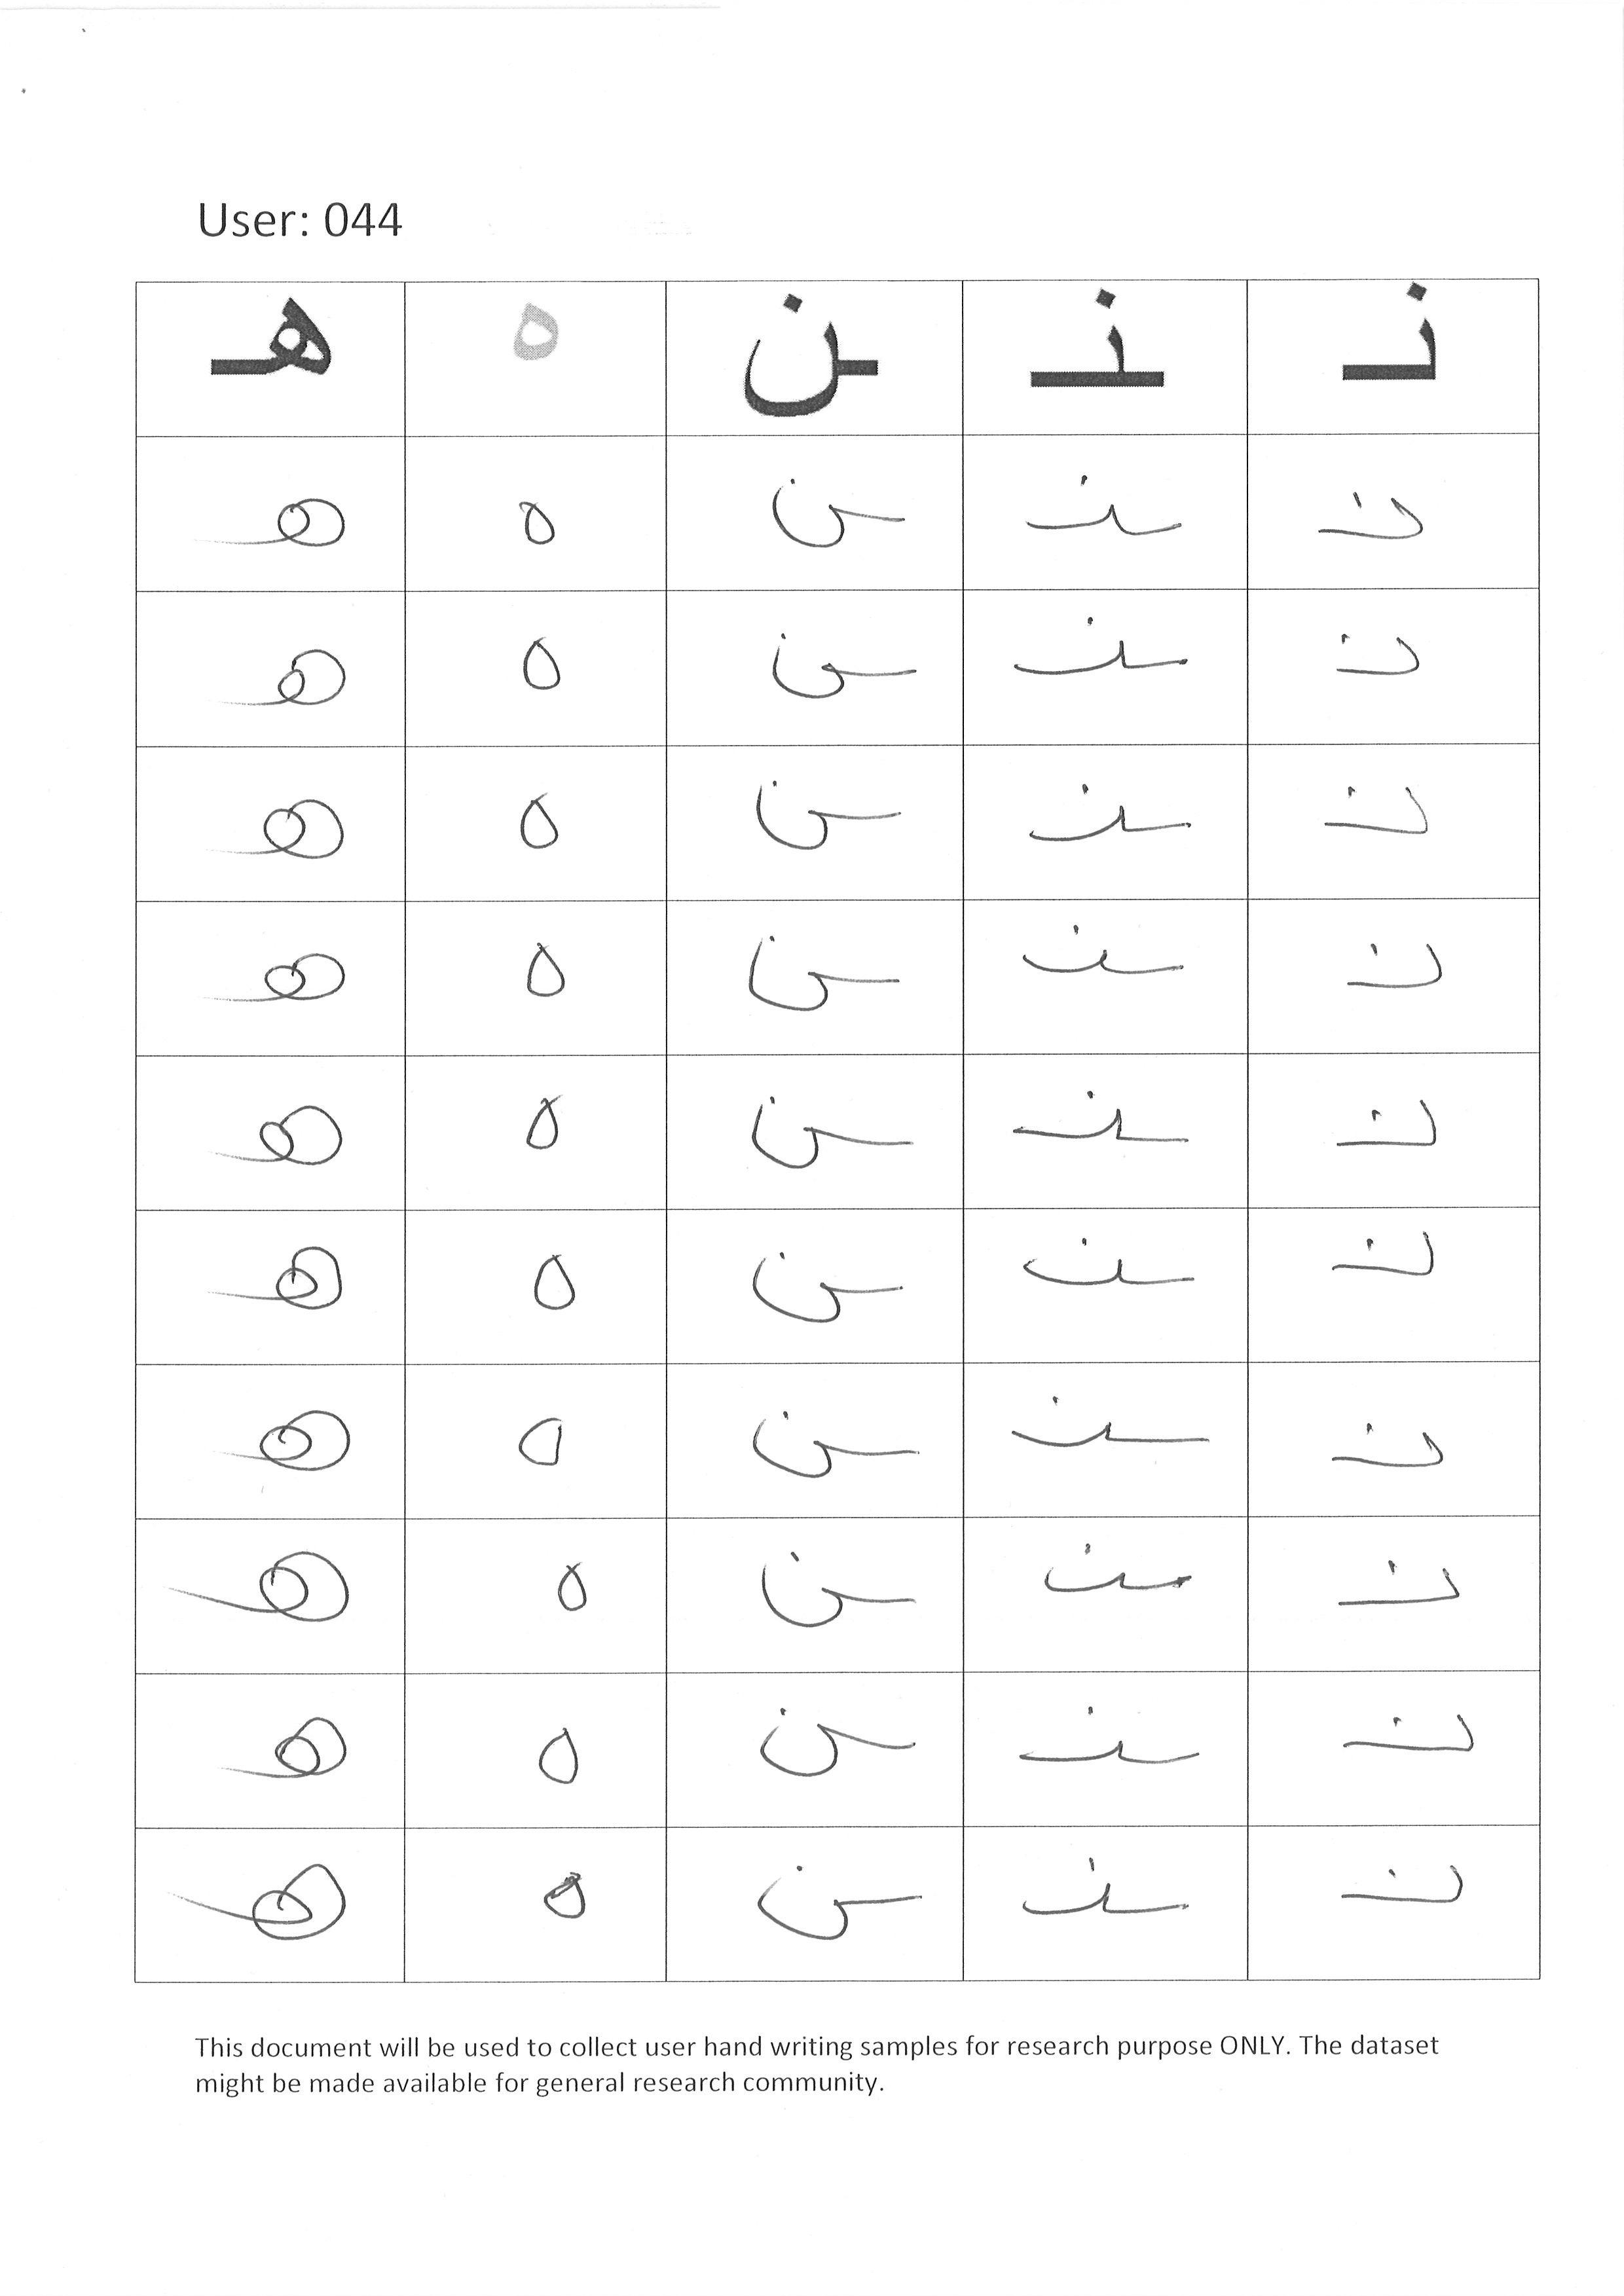 User: 044
نـ ـنـ ـن ه هـ
نـ ـنـ ـن ه هـ
نـ ـنـ ـن ه هـ
نـ ـنـ ـن ه هـ
نـ ـنـ ـن ه هـ
نـ ـنـ ـن ه هـ
نـ ـنـ ـن ه هـ
نـ ـنـ ـن ه هـ
نـ ـنـ ـن ه هـ
نـ ـنـ ـن ه هـ
نـ ـنـ ـن ه هـ
This document will be used to collect user hand writing samples for research purpose ONLY. The dataset
might be made available for general research community.